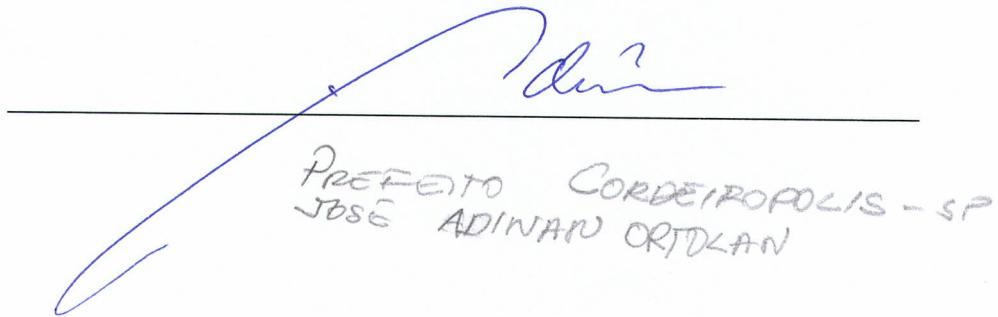 Adin
PREFEITO CORDEIROPOLIS - SP
JOSÉ ADINAN ORTOLAN